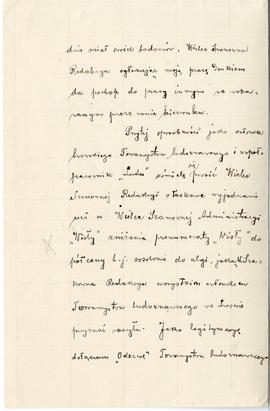 dzie miał wśród badaczów. Wielce Szanowna
Redakcya ogłaszając moją pracę drukiem
da podnop do pracy innym we wska-
zanym przeze mnie kierunku.
Przytej sposobności jako członek
lwowskiego Towarzystwa ludoznawczego i współ-
pracownik "Ludu" ośmielę się prosić Wielce
Szanownej Redakcyi o łaskawe wyjednanie
mi w Wielce Szanownej Administracyi
"Wisły" zniżenia prenumeraty "Wisły" do
pół ceny t. j. stosownie do ulgi, jaką Sza-
nowna Redakcya wszystkim członkom
Towarzystwa ludoznawczego we Lwowie
przyznać raczyła. Jako legitymacyę
dołączam "Odezwę" Towarzystwa ludoznawczego